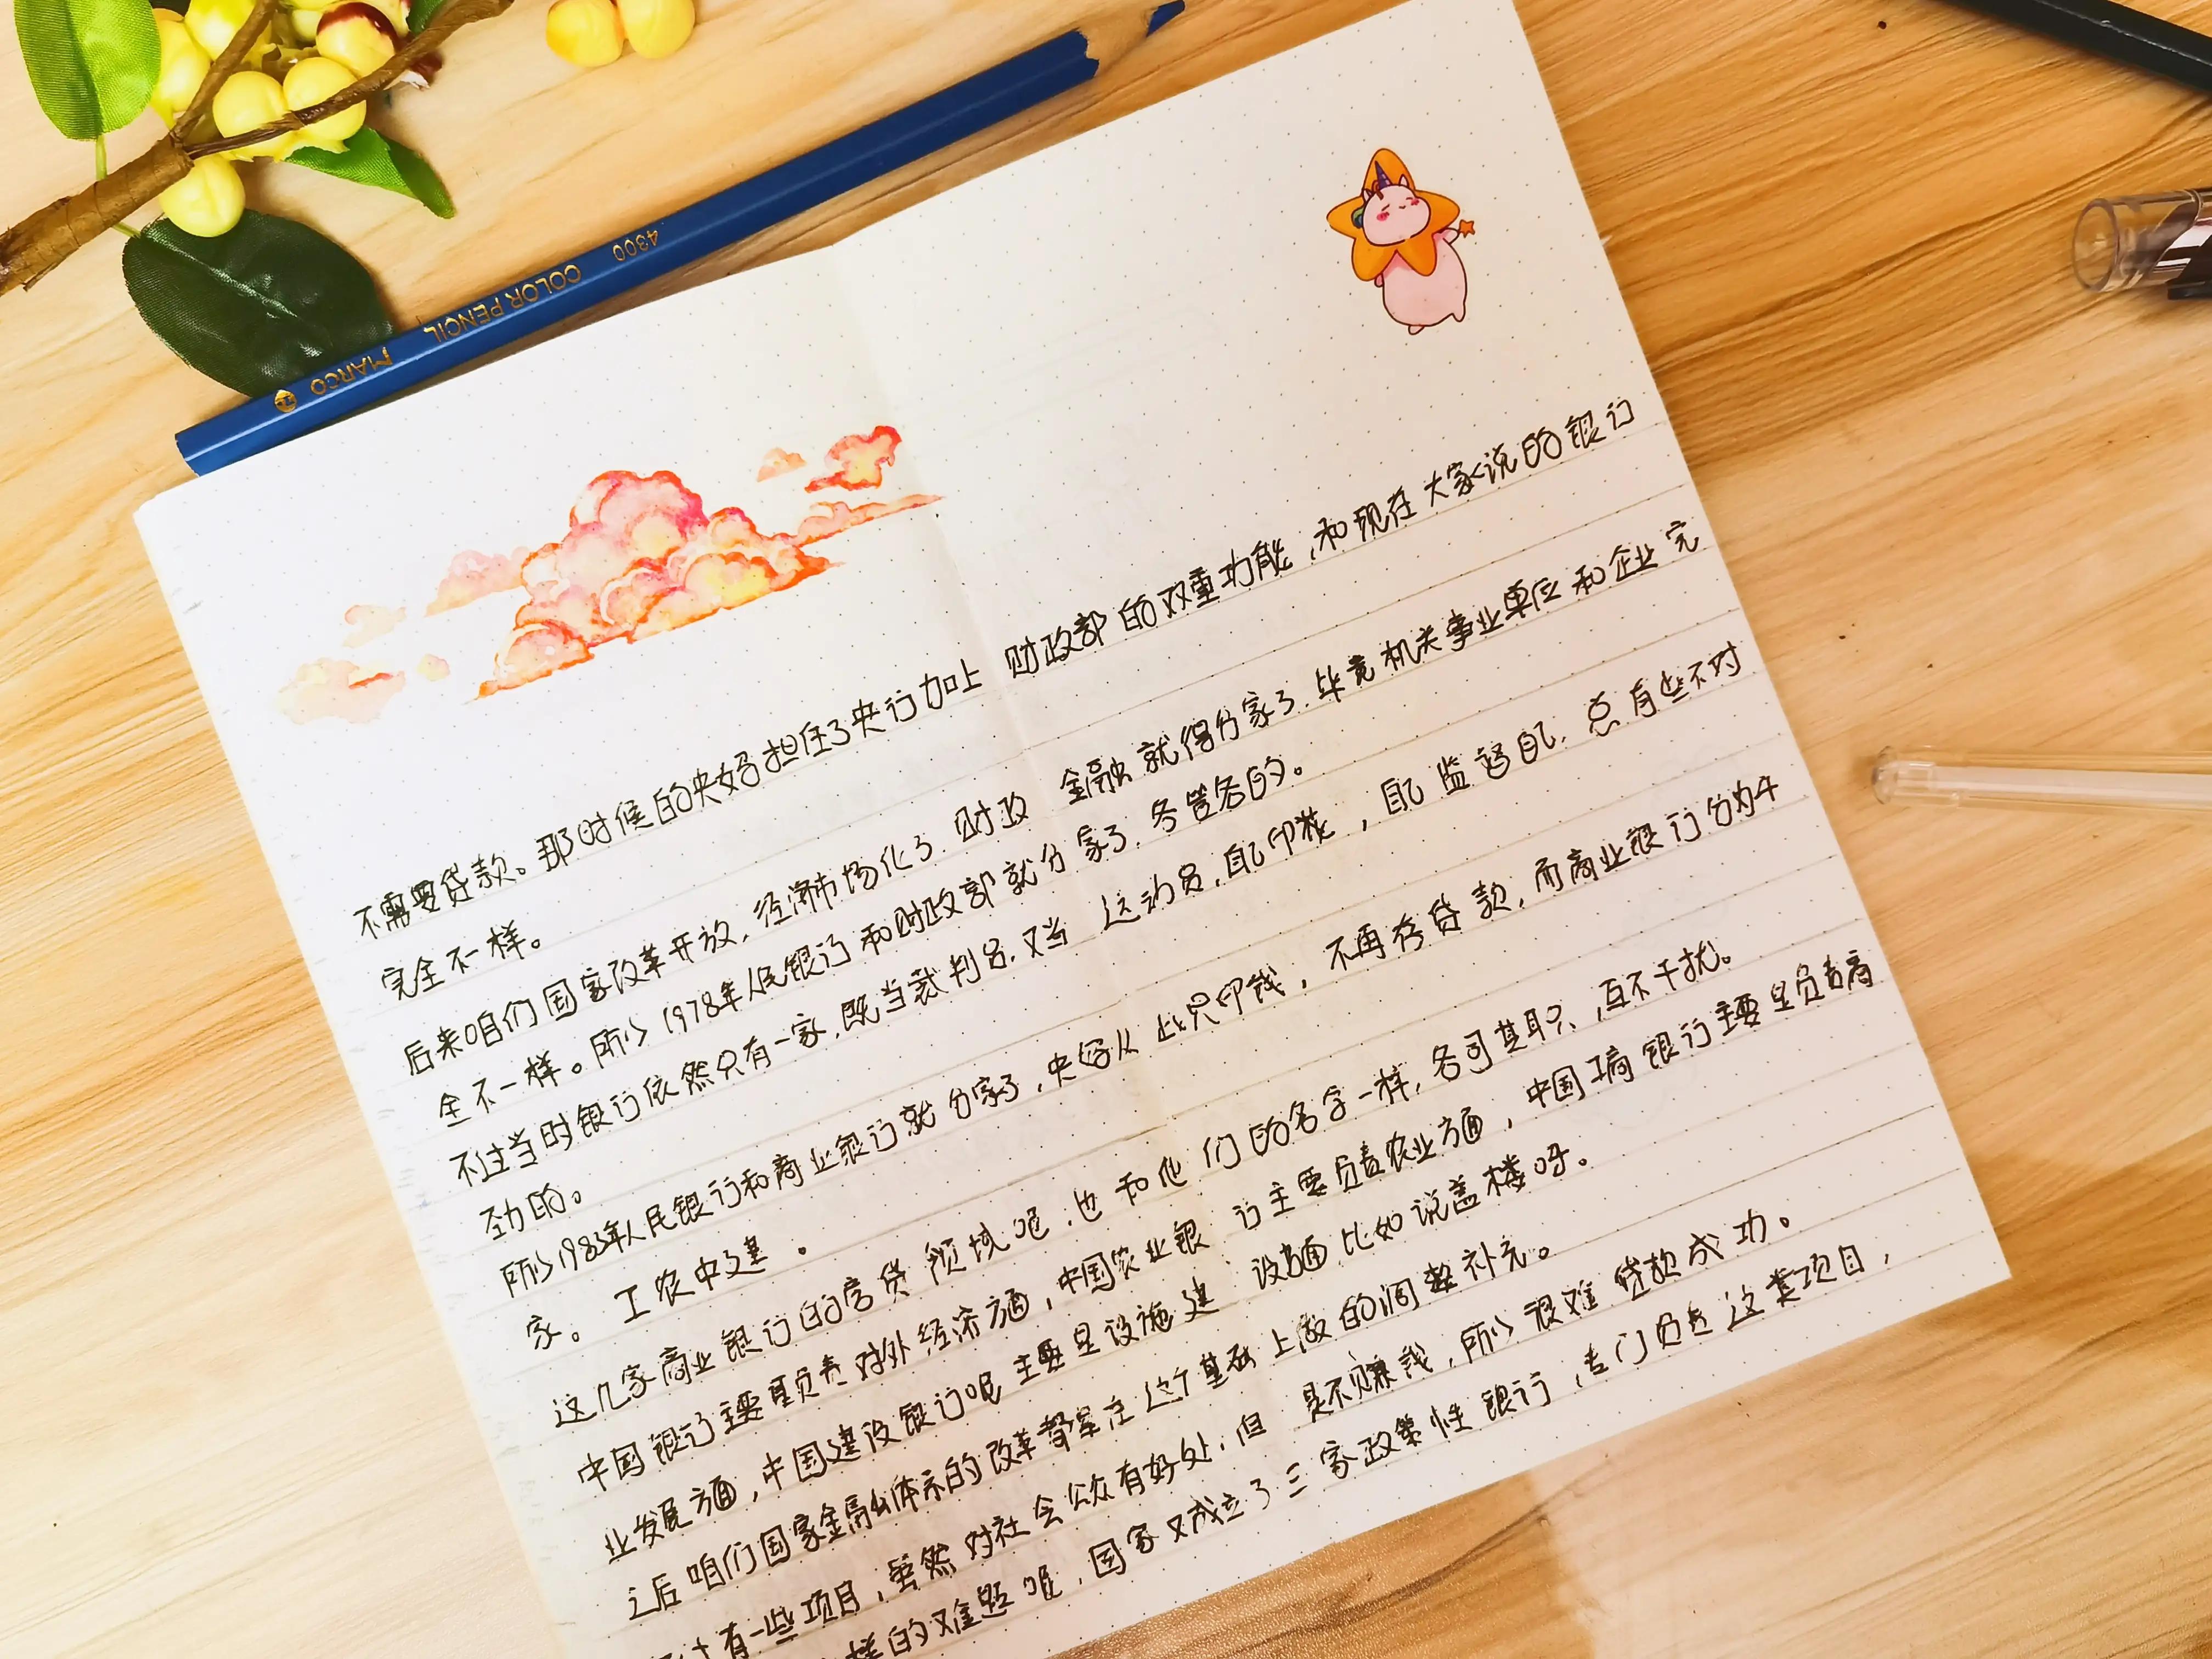 MARCO COLOR PENCIL 4300
不需要贷款。那时候的央妈担任了央行加上 财政部的双重功能,和现在大家说的银行
完全不一样。
后来咱们国家改革开放,经济市场化了.财政 金融就得分家了.毕竟机关事业单位和企业完
全不一样。所以1978年人民银行和财政部就分家了.各管各的。
不过当时银行依然只有一家,既当裁判员.又当 运动员,自己印钱,自己监督自己.总有些不对
劲的。
所以1983年人民银行和商业银行就分家了,央妈从此只印钱,不再存贷款,而商业银行分为4
家。工农中建。
这几家商业银行的信贷领域呢.也和他们的名字一样,各司其职,互不干扰。
中国银行主要是负责对外经济方面,中国农业银行主要负责农业方面,中国工商银行主要是负责商
业发展方面,中国建设银行呢主要是设施建设方面比如说盖楼呀。
之后咱们国家金融体系的改革都是在这个基础上做的调整补充。
有一些项目,虽然对社会公众有好处.但是不赚钱,所以很难贷款成功。
样的难题呢,国家又成立了三家政策性银行,专门负责这类项目,